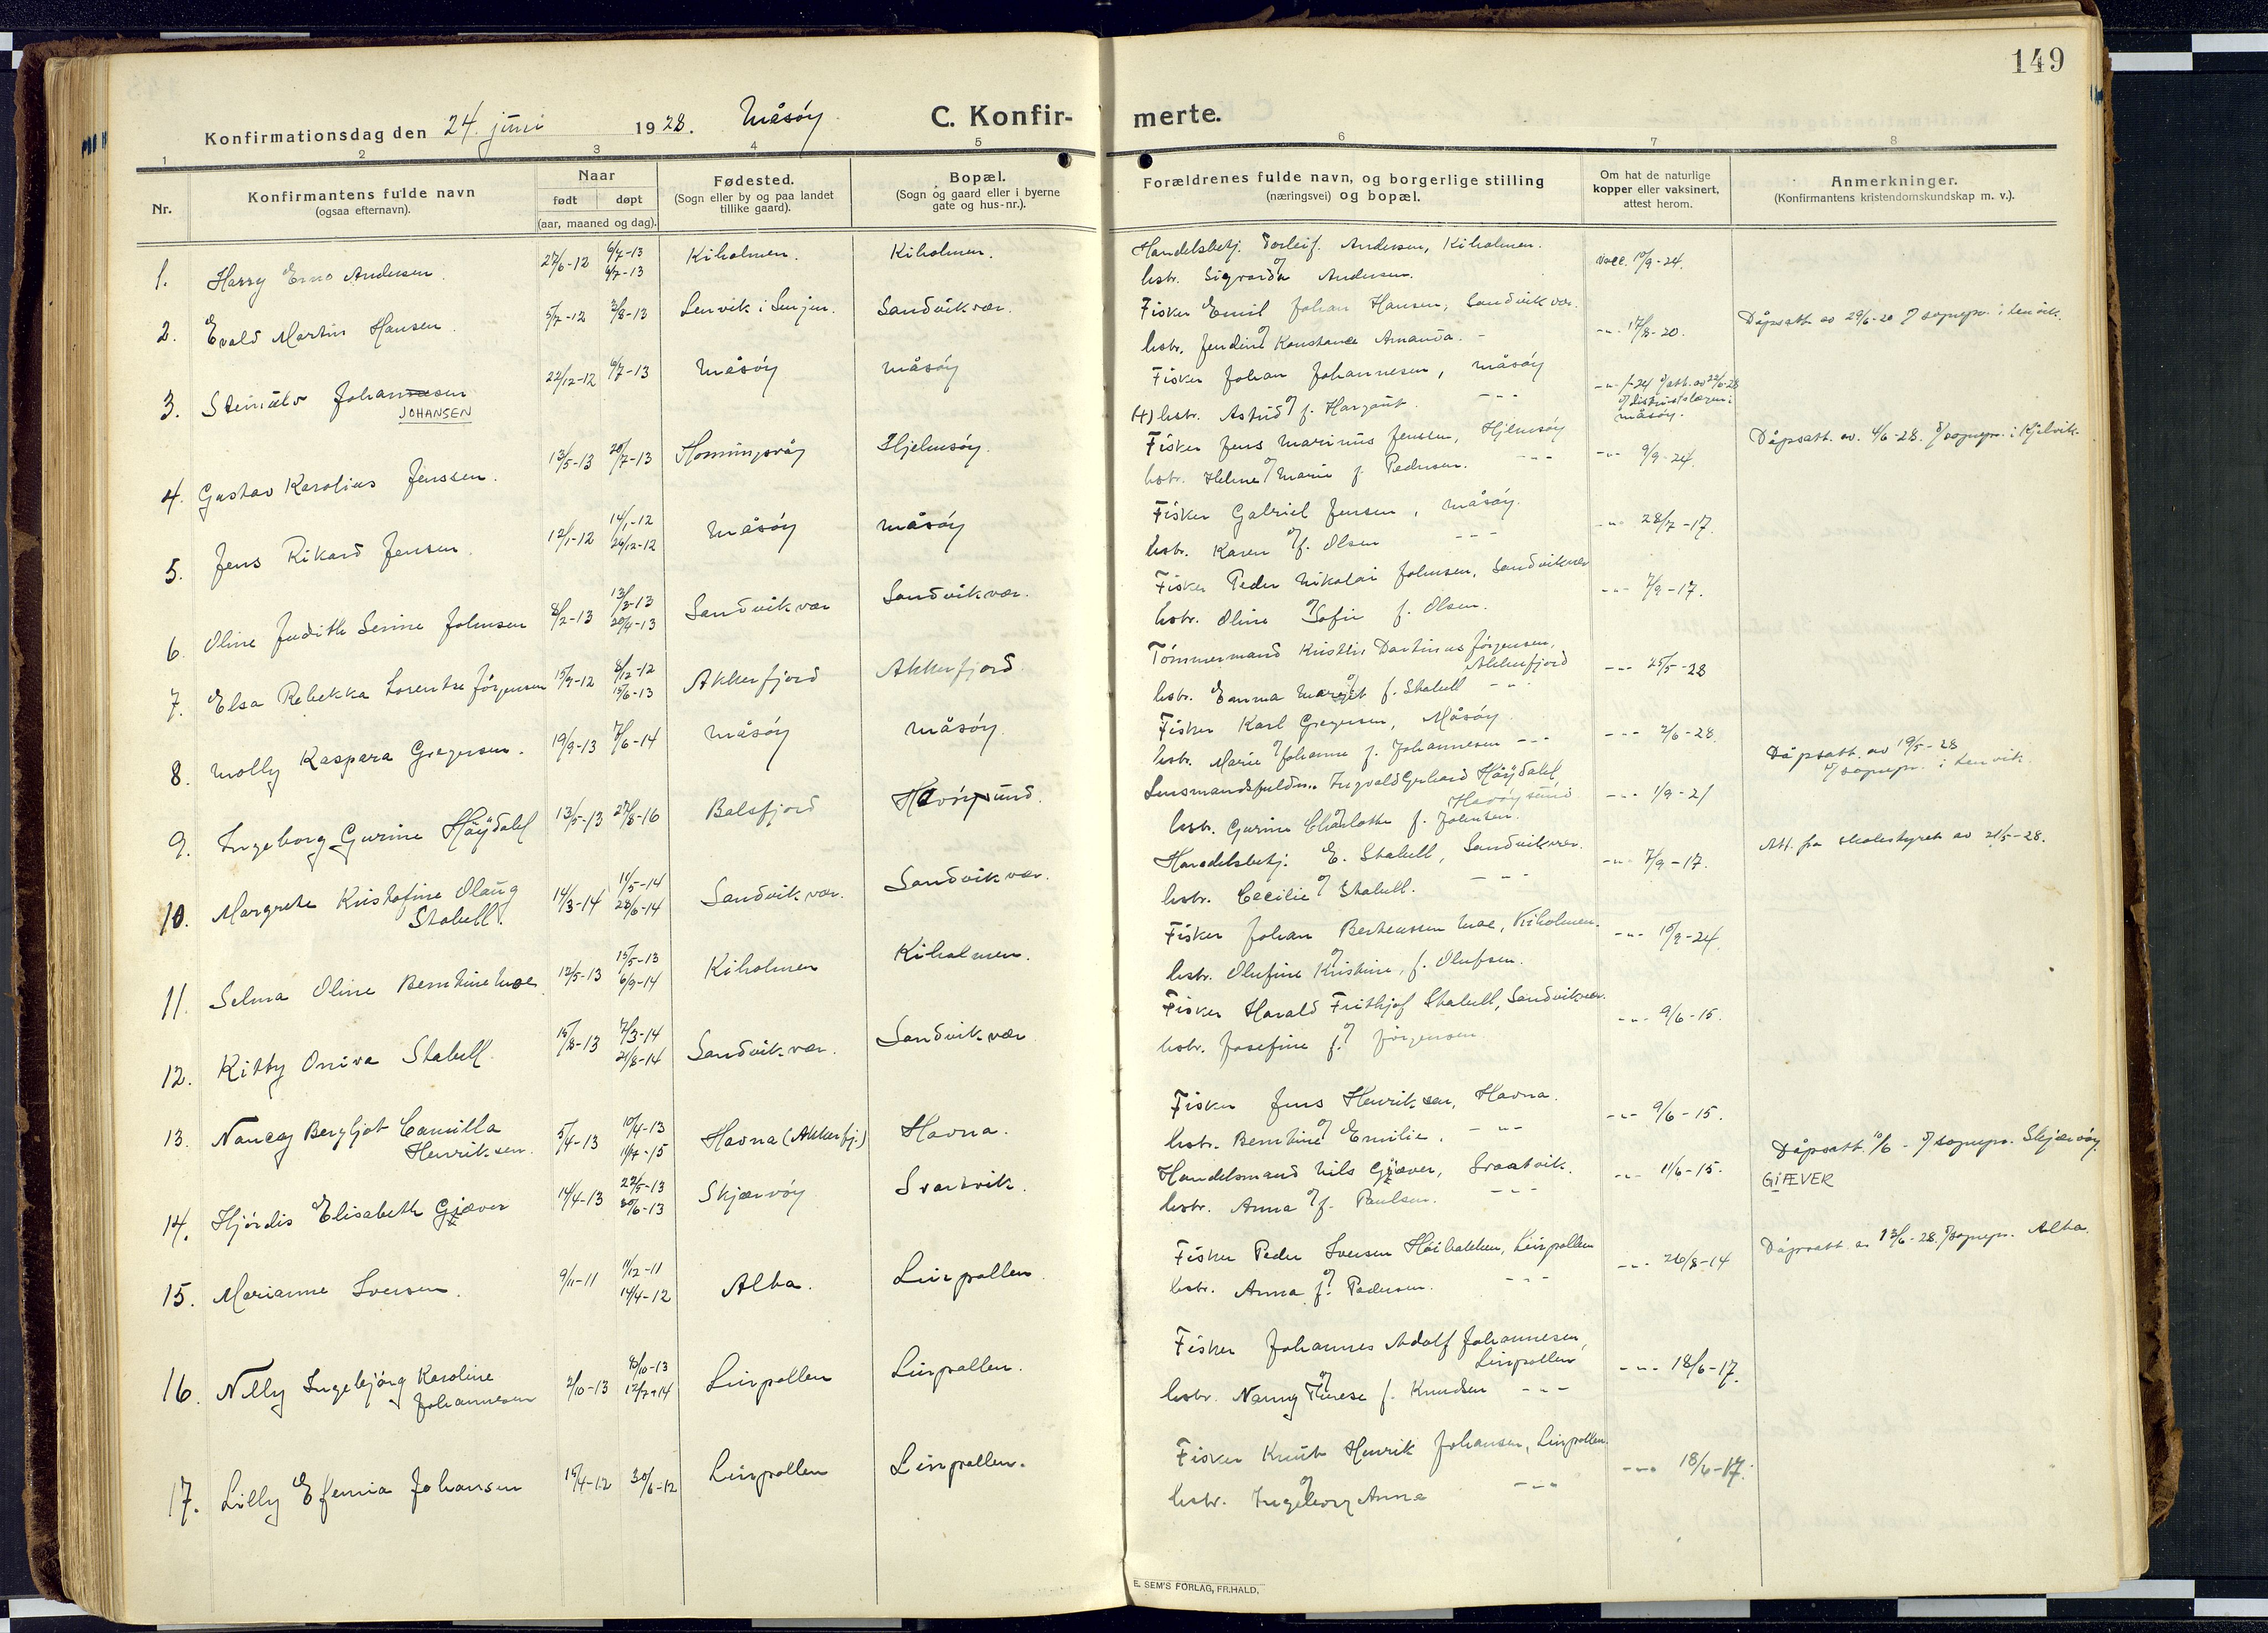 149
Konfirmationsdag den 24. juni 1928. Måsöy C. Konfir- merte.
1 2 3 4 5 6 7 8
Nr.
Konfirmantens fulde navn
(ogsaa efternavn).
Naar
født døpt
(aar, maaned og dag).
Fødested.
(Sogn eller by og paa landet
tillike gaard).
Bopæl.
(Sogn og gaard eller i byerne
gate og hus-nr.).
Forældrenes fulde navn, og borgerlige stilling
(næringsvei) og bopæl.
Om hat de naturlige
kopper eller vaksinert,
attest herom.
Anmerkninger.
(Konfirmantens kristendomskundskap m. v.).
1. Harry Erno Andersen. 27/6-12 6/4-13 Kiholmen. Kiholmen. Handelsbetj. Torleif. Andersen, Kiholmen. Vacc. 10/9-24.
6/7-13 hstr. Sigvarda Andersen.
2. Evald Martin Hansen. 5/7-12 3/8-13 Lenvik i Senjen. Sandvikvær. Fisker Emil Johan Hansen, Sandvikvær. -"- 17/8-20. Dåpsatt. av 29/6-20 f/ sognepr. i Lenvik.
hstr. Jendine Konstance Amanda. -
3. Steinulv Johannesen 22/12-12 6/7-13 Måsöy Måsöy Fisker Johan Johannesen, Måsöy
JOHANSEN (+) hstr. Astrid f. Hargaut. -"- -24 f/ att. av 22/6-28
f/ distriktslægen i
Måsöy.
4. Gustav Karolius Jenssen. 13/5-13 20/7-13 Honningsvåg Hjelmsöy. Fisker Jens Marinius Jenssen, Hjelmsöy -"- 9/9-24. Dåpsatt. av. 4/6-28. f/ sognepr. i Kjelvik.
hstr. Helene Marie f. Pedersen. -"-
5. Jens Rikard Jensen. 12/1-12 14/1-12 Måsöy Måsöy Fisker Gabriel Jensen, Måsöy. -"- 28/7-17.
26/12-12 hstr. Karen f. Olsen -"-
6. Oline Judith Serine Johnsen 8/2-13 13/2-13 Sandvikvær Sandvikvær. Fisker Peder Nikolai Johnsen, Sandvikvær -"- 7/9-17.
20/4-13 hstr. Oline Sofie f. Olsen.
7. Elsa Rebekka Lorentze Jörgensen 15/9-12 8/12-12 Akkerfjord Akkerfjord Tömmermand Kristli Dartinus Jörgensen,
Akkerfjord -"- 25/5-28
15/6-13 hstr. Emma Margit f. Stabell -"-
8. Molly Kaspara Gregersen. 19/9-13 7/6-14 Måsöy Måsöy. Fisker Karl Gregersen, Måsöy. -"- 2/6-28.
hstr. Marie Johanne f. Johannesen -"-
9. Ingeborg Gurine Höydahl 13/5-13 27/8-16 Balsfjord Havöysund. Lensmandsfuldm. Ingvald Gerhard Höydahl,
Havöysund -"- 1/9-21 Dåpsatt. av 19/5-28
f/ sognepr. i Lenvik.
hstr. Gurine Charlotte f. Johnsen.
10. Margrete Kristofine Olaug 14/3-14 11/5-14 Sandvikvær. Sandvikvær. Handelsbetj. E. Stabell, Sandvikvær. -"- 7/9-17. Att. fra skolestyret av 21/5-28.
Stabell. 28/6-14 hstr. Cecilie Stabell. -"-
11. Selma Oline Berntine Moe 12/5-13 15/5-13 Kiholmen Kiholmen. Fisker Johan Berteussen Moe, Kiholmen. -"- 10/9-24
6/9-14 hstr. Olufine Kristine, f. Olufsen.
12. Kitty Oniva Stabell. 15/8-13 7/3-14 Sandvikvær. Sandvikvær Fisker Harald Frithjof Stabell, Sandvikvær. -"- 9/6-15.
21/8-14 hstr. Josefine f. Jörgensen
13. Nancy Bergljot Camilla 5/4-13 10/4-13 Havna (Akkerfj.) Havna. Fisker Jens Henriksen, Havna. -"- 9/6-15.
Henriksen. 11/7-15 hstr. Berntine Emilie. -"-
14. Hjördis Elisabeth Gjæver 14/4-13 22/5-13 Skjærvöy Svartvik. Handelsmand Nils Gjæver, Svartvik. -"- 11/6-15. Dåpsatt. 11/6 - f/ sognepr. Skjærvöy.
GIÆVER
30/6-13 hstr. Anna f. Paulsen. -"-
15. Marianne Iversen. 9/11-11 11/12-11 Alta. Lirpollen. Fisker Peder Iversen Höibakken, Lirpollen -"- 26/8-14 Dåpsatt. av 13/6-28. f/ sognepr. Alta.
14/4-12 hstr. Anna f. Pedersen. -"-
16. Nelly Ingebjörg Karoline 2/10-13 8/10-13 Lirpollen Lirpollen. Fisker Johannes Adolf Johannesen,
Lirpollen -"- 18/6-17.
Johannesen 12/7-14 hstr. Nanny Therese f. Knudsen -"-
17. Lilly Efenia Johansen 15/4-12 30/6-12 Lirpollen Lirpollen. Fisker Knut Henrik Johansen, Lirpollen. -"- 18/6-17.
hstr. Ingeborg Anna -"-
E. SEM'S FORLAG, FR.HALD.